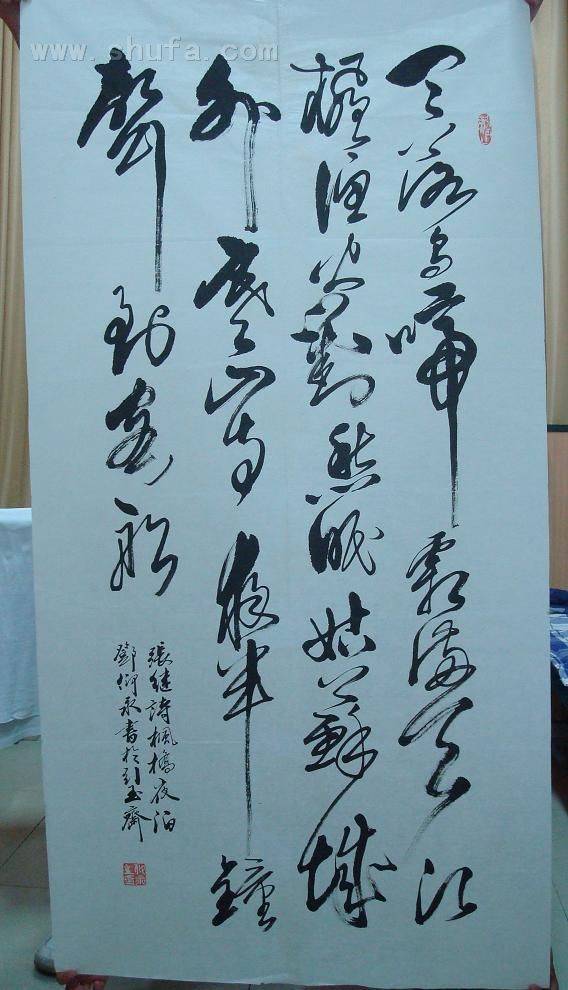 www.shufa.com
月落烏啼霜滿天江
楓漁火對愁眠姑蘇城
外寒山寺夜半鐘
聲到客船
張繼詩楓橋夜泊
鄧仰永書於引玉齋